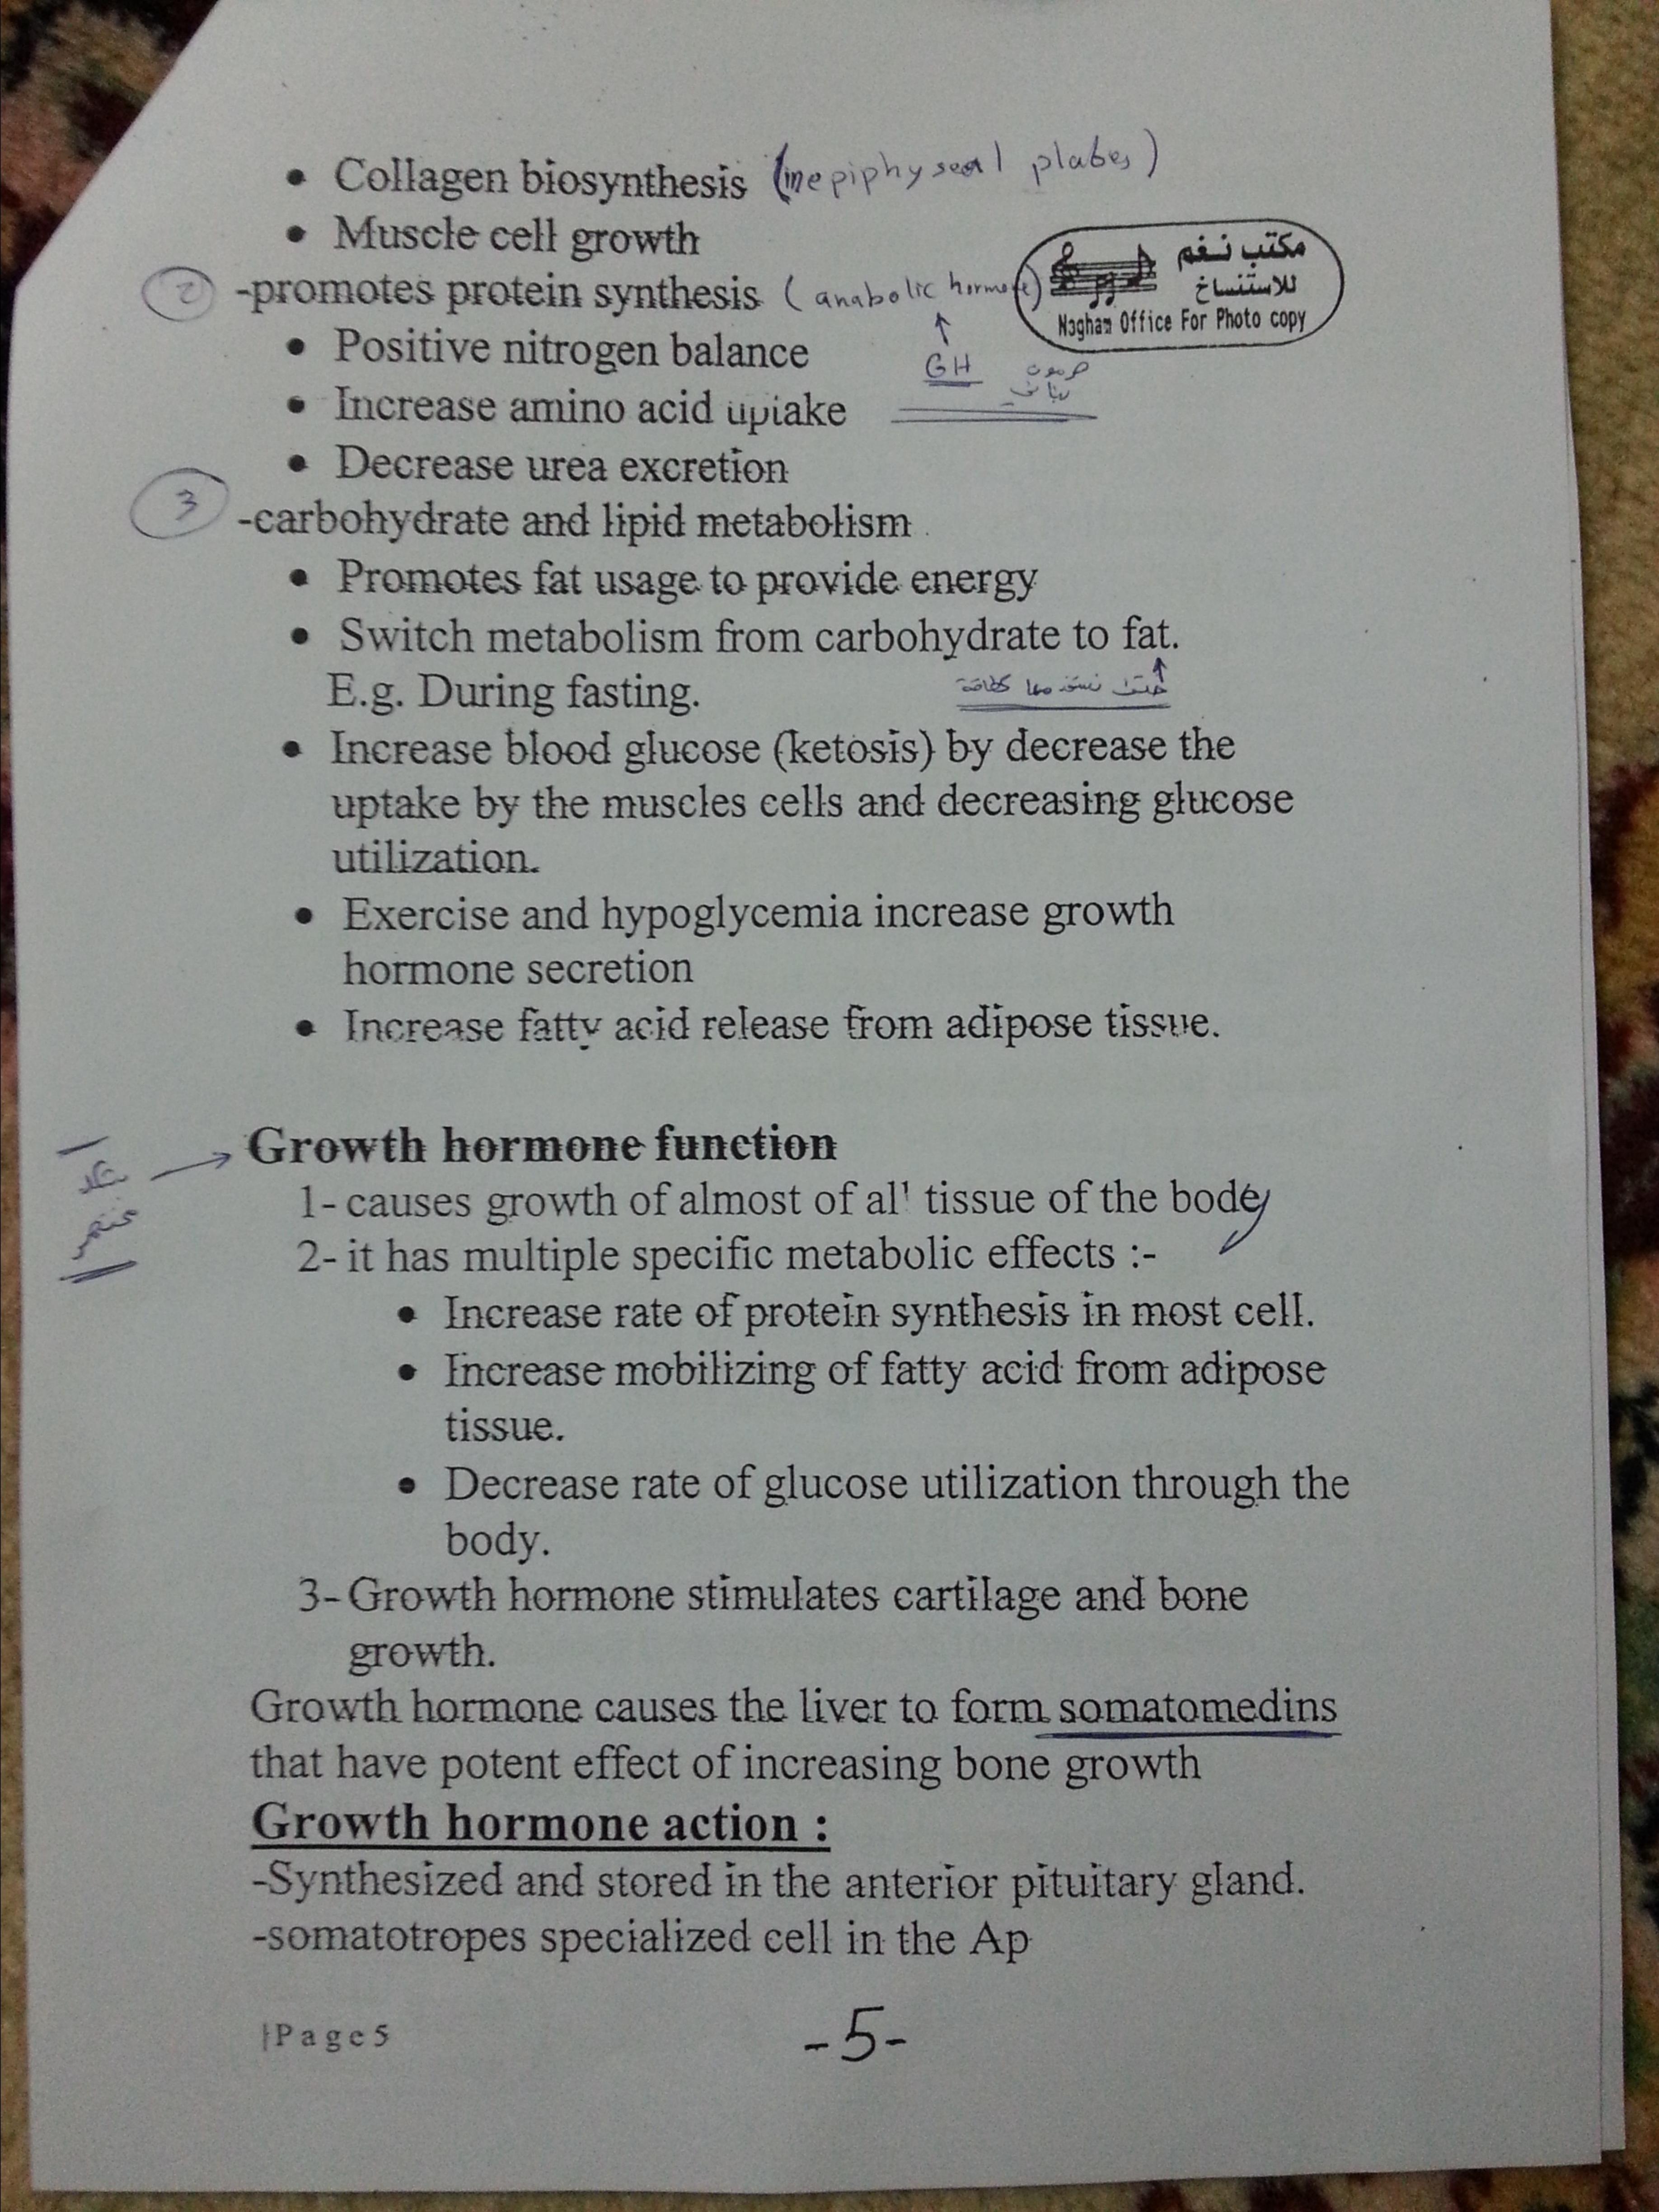 • Collagen biosynthesis (in epiphyseal plates)
• Muscle cell growth
مكتب نغم
للاستنساخ
Nagham Office For Photo copy
2 -promotes protein synthesis (anabolic hormone)
GH هرمون
بنائي
• Positive nitrogen balance
• Increase amino acid uptake
• Decrease urea excretion
3 -carbohydrate and lipid metabolism
• Promotes fat usage to provide energy
• Switch metabolism from carbohydrate to fat.
E.g. During fasting.
كطاقة
• Increase blood glucose (ketosis) by decrease the
uptake by the muscles cells and decreasing glucose
utilization.
• Exercise and hypoglycemia increase growth
hormone secretion
• Increase fatty acid release from adipose tissue.
Growth hormone function
مختصر
1- causes growth of almost of all tissue of the body
2- it has multiple specific metabolic effects :-
• Increase rate of protein synthesis in most cell.
• Increase mobilizing of fatty acid from adipose
tissue.
• Decrease rate of glucose utilization through the
body.
3- Growth hormone stimulates cartilage and bone
growth.
Growth hormone causes the liver to form somatomedins
that have potent effect of increasing bone growth
Growth hormone action :
-Synthesized and stored in the anterior pituitary gland.
-somatotropes specialized cell in the Ap
|Page5
-5-